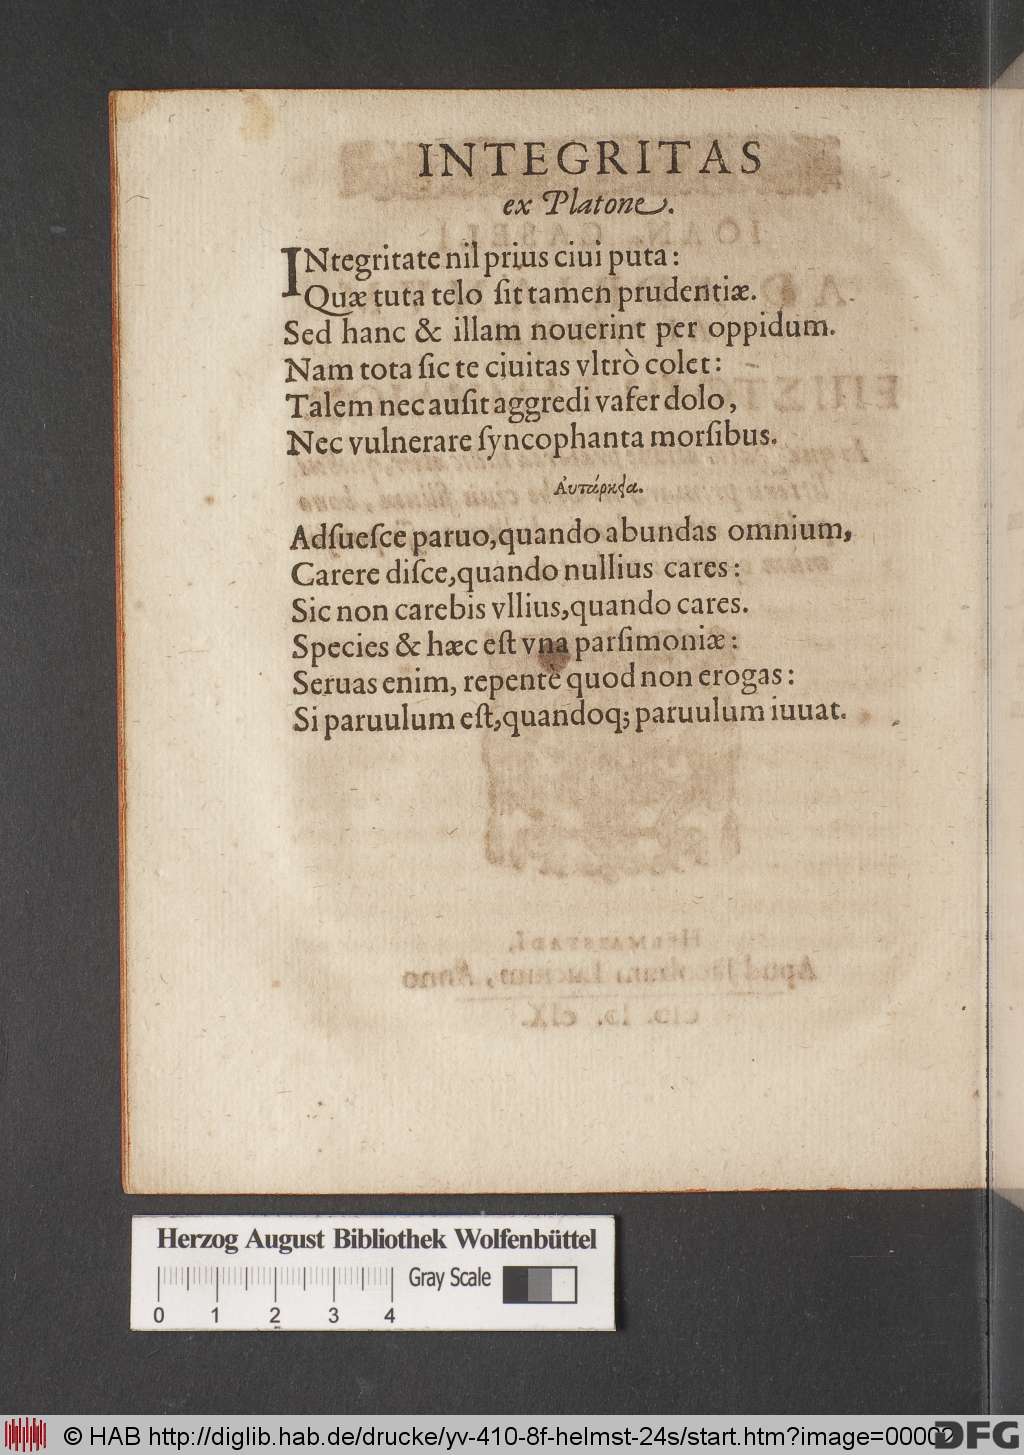 INTEGRITAS
ex Platone.
INtegritate nil prius ciui puta:
Quæ tuta telo ſit tamen prudentiæ.
Sed hanc & illam nouerint per oppidum.
Nam tota ſic te ciuitas vltrò colet:
Talem nec auſit aggredi vafer dolo,
Nec vulnerare ſyncophanta morſibus.
Αυτάρκεια.
Adſueſce paruo, quando abundas omnium,
Carere diſce, quando nullius cares:
Sic non carebis vllius, quando cares.
Species & hæc eſt vna parſimoniæ:
Seruas enim, repentè quod non erogas:
Si paruulum eſt, quandoq; paruulum iuuat.
Herzog August Bibliothek Wolfenbüttel
Gray Scale
0 1 2 3 4
© HAB http://diglib.hab.de/drucke/yv-410-8f-helmst-24s/start.htm?image=00002
DFG